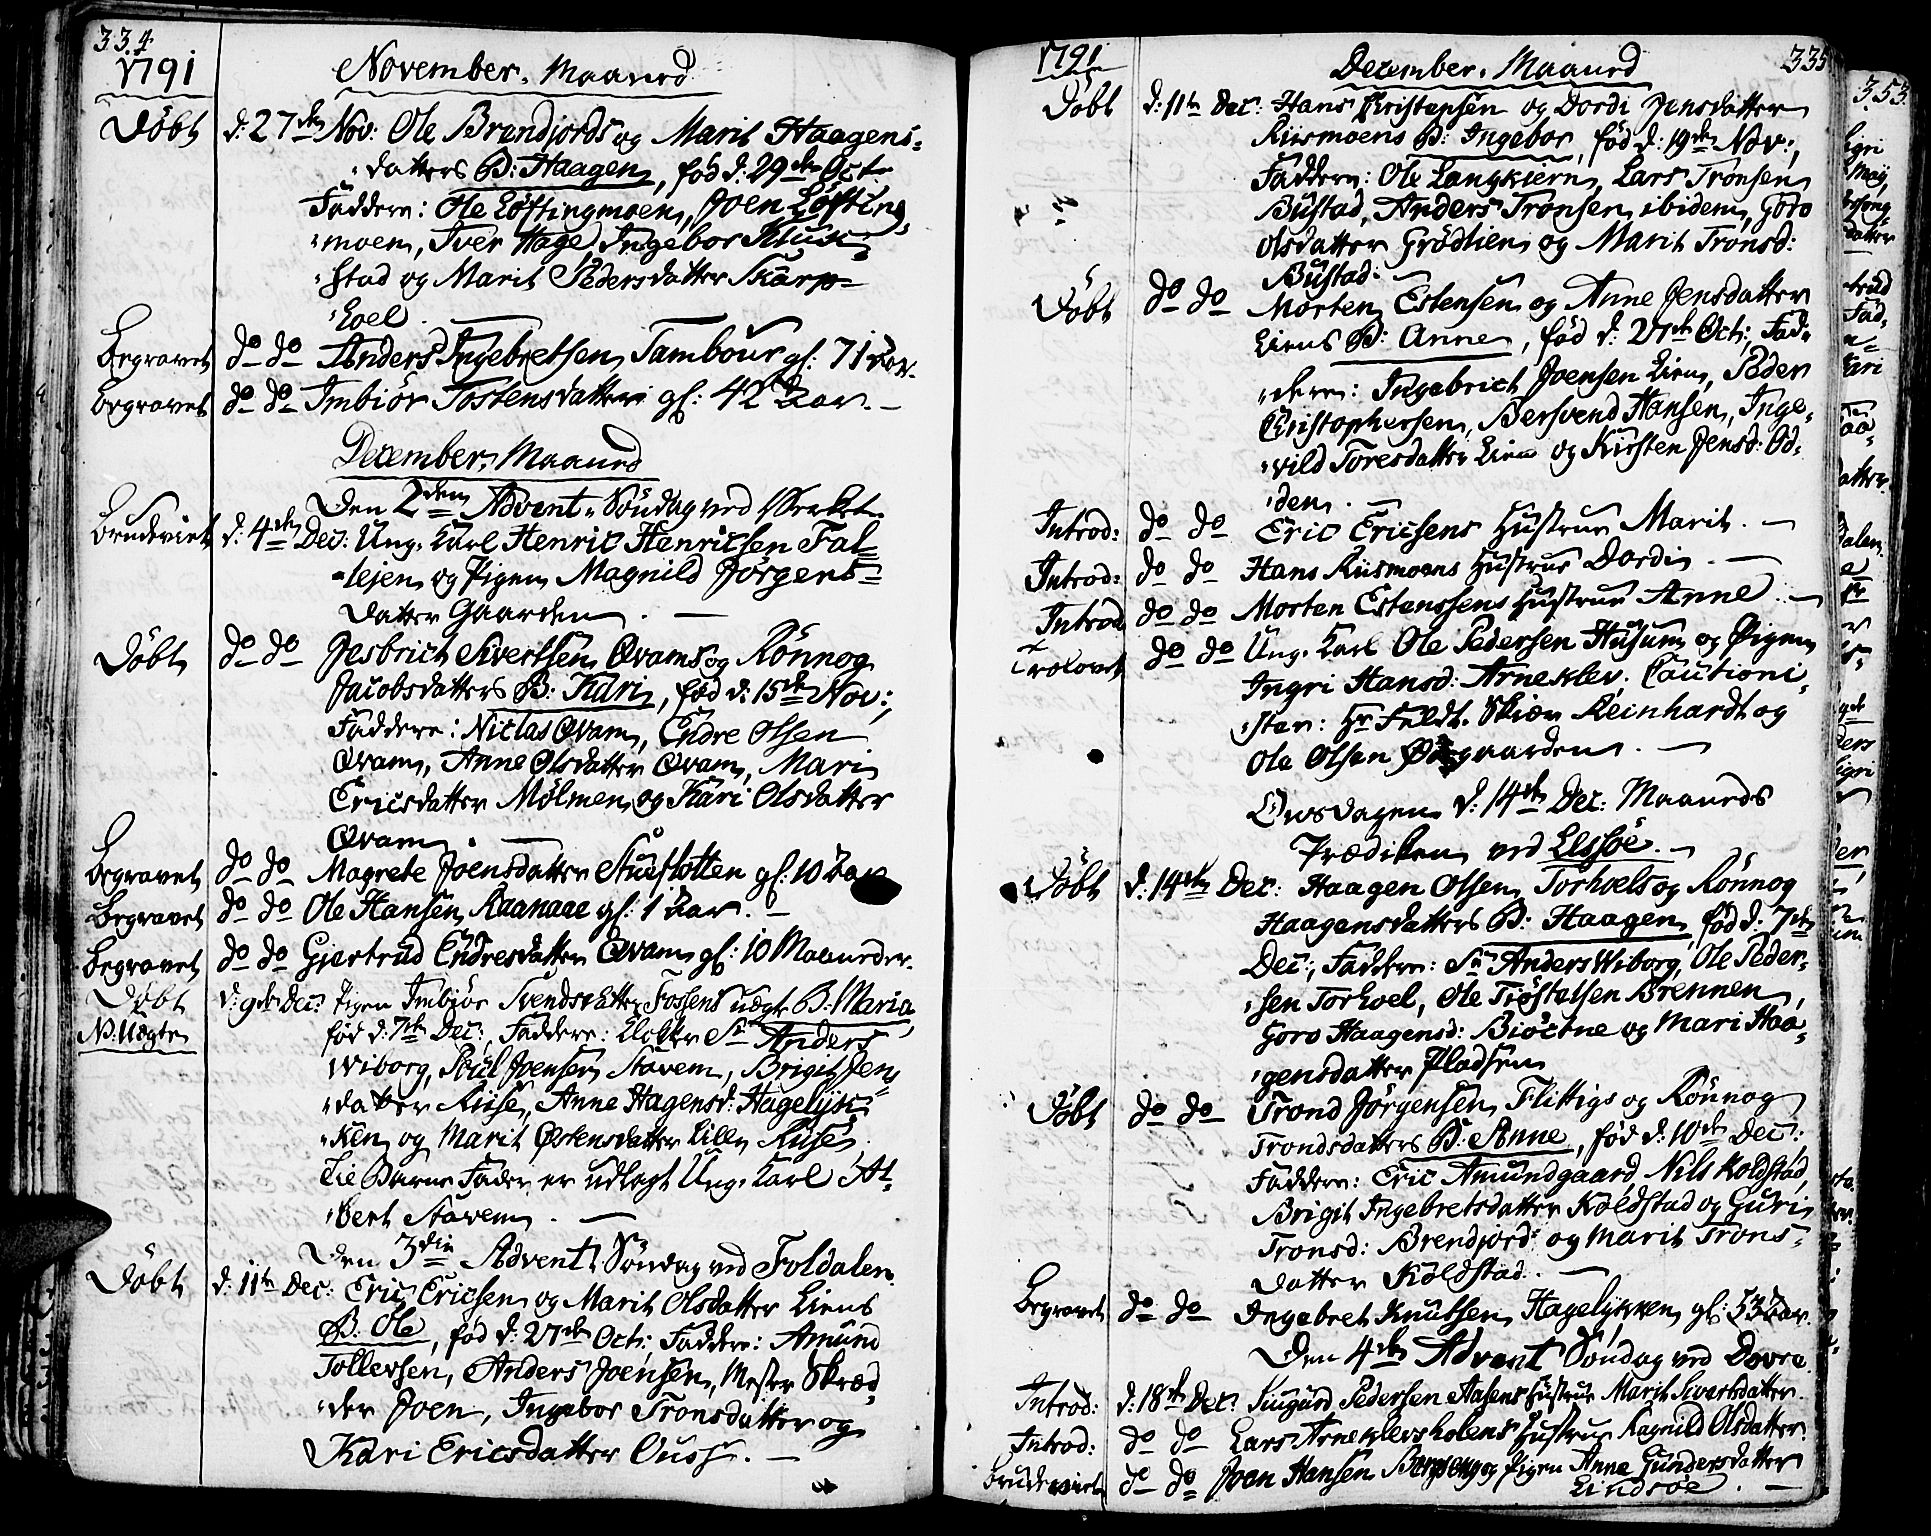 334
1791
November. Maaned
Döbt d: 27de Nov: Ole Brendjords og Marit Haagens-
datters B: Haagen, fød d: 29de Oct:
Faddere: Ole Löftingmoen, Joen Löfting-
moen, Iver Hage, Ingebor Klus-
stad og Marit Pedersdatter Skarp-
hoel.
Begravet do do Anders Ingebretsen Tambour gl: 71 Aar.
Begravet do do Imbiör Tostensdatter gl: 42 Aar.
December. Maaned
Den 2den Advent Söndag ved Verket
Brudeviet d: 4de Dec: Ung. Karl Henric Henricsen Fal-
lejen og Pigen Magnild Jörgens-
datter Gaarden.
Döbt do do Jesbrich Sivertsen Qvams og Rönnog
Jacobsdatters B: Kari, fød d: 15de Nov:,
Faddere: Niclas Qvam, Endre Olsen
Qvam, Anne Olsdatter Qvam, Mari
Ericsdatter Mölmen og Kari Olsdatter
Qvam.
Begravet do do Magrete Joensdatter Stueflotten gl: 10 Aar
Begravet do do Ole Hansen Raanaae gl: 1 Aar.
Begravet do do Gjertrud Endresdatter Qvam gl: 10 Maaneder.
Döbt d: 9de Dec: Pigen Imbiör Svendsdatter Fossens uægte B: Maria
N: Uægte fød d: 7de Dec:, Faddere: Klokker Sr Anders
Wiborg, Poul Joensen Stavem, Brigit Jens-
datter Riise, Anne Hagensd: Hagelyk-
ken og Marit Östensdatter Lille Riise.
Til Barne Fader er udlagt Ung. Karl Al-
bert Stavem.
Den 3die Advent Söndag ved Foldalen
Döbt d: 11te Dec: Eric Ericsen og Marit Olsdatter Liens
B: Ole, fød d: 27de Oct:, Faddere: Amund
Tollevsen, Anders Joensen, Mester Skræd-
der Joen, Ingebor Tronsdatter og
Kari Ericsdatter Ous.
1791
December. Maaned
335
Döbt d: 11te Dec: Hans Christophsen og Dordi Jensdatter
Riismoens B: Ingebor, fød d: 19de Nov:,
Faddere: Ole Langkiern, Lars Tronsen
Bustad, Anders Tronsen ibidem, Goro
Olsdatter Grödlien og Marit Tronsd:
Bustad.
Döbt do do Morten Estensen og Anne Jensdatter
Liens B: Anne, fød d: 27de Oct:, Fad-
dere: Ingebrict Joensen Lien, Peder
Christophersen, Bersvend Hansen, Inge-
vild Toresdatter Lien og Kirsten Jensd: Od-
den.
Introd: do do Eric Ericsens Hustrue Marit.
Introd: do do Hans Riismoens Hustrue Dordi.
Introd do do Morten Estenssens Hustrue Anne.
Trolovet do do Ung. Karl Ole Pedersen Husum og Pigen
Ingri Hansd: Arneklev. Cautioni-
ster: Hr Feldt. Skiær Reinhardt og
Ole Olsen gaarden.
Onsdagen d: 14de Dec: Maaneds
Prædiken ved Lessöe.
Döbt d: 14de Dec: Haagen Olsen Torhoels og Rönnog
Haagensdatters B: Haagen, fød d: 7de
Dec:, Faddere: Sr Anders Wiborg, Ole Peder-
sen Torhoel, Ole Tiöstelsen Brennen,
Goro Haagensd: Biöctne og Mari Haa-
gensdatter Pladsen
Döbt do do Trond Jörgensen Flittigs og Rönnog
Trondsdatters B: Anne, fød d: 10de Dec:,
Faddere: Eric Amundgaard, Nils Koldstad,
Brigit Ingebretsdatter Koldstad og Guri
Tronsd: Brendjord og Marit Trons-
datter Koldstad.
Begravet do do Ingebret Knutsen Hagelykken gl: 53 Aar.
Den 4de Advent Söndag ved Dovre
Introd: d: 18de Dec: Siugurd Pedersen Aasens Hustrue Marit Sivertsdatter
Introd: do do Lars Arneklevsholens Hustrue Ragnild Olsdatter.
Brudeviet do do Joen Hansen og Pigen Anne Gundersdatter
Lindsöe.
353